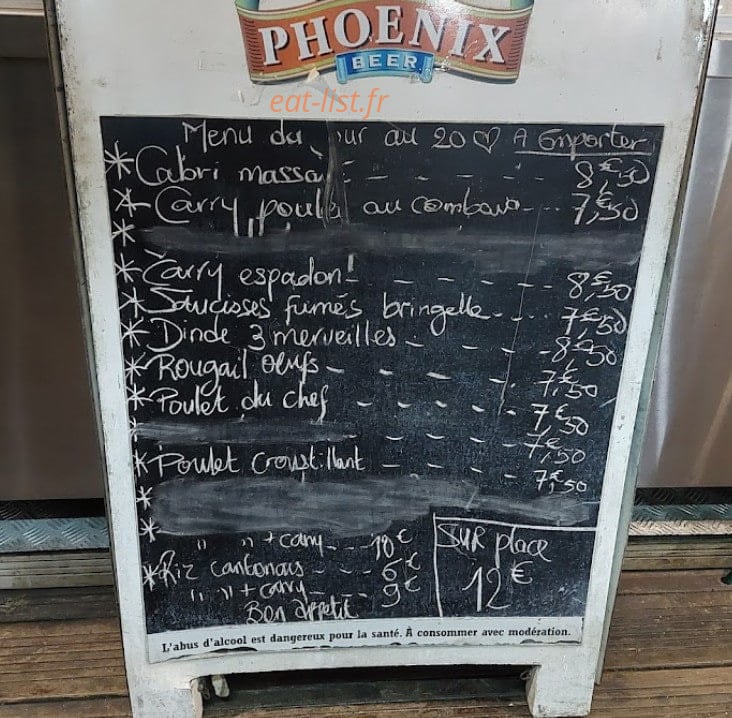 PHOENIX
BEER
eat-list.fr
Menu du jour au 20 ♡ A Emporter
* Cabri massalé - - - - - 8€,50
* Carry poulet au combava - - - 7€,50
*
* Carry espadon! - - - - - - 8€,50
* Saucisses fumés bringelle - - - - 7€,50
* Dinde 3 merveilles - - - - - 8€,50
* Rougail œufs - - - - - 7€,50
* Poulet du chef - - - - - 7€,50
* - - - - 7€,50
* Poulet Croustillant - - - - - 7€,50
*
*
" " + carry - - - 10€
* Riz cantonais - - - 6€
" " + carry - - - 9€
Bon appetit
SUR place
12€
L'abus d'alcool est dangereux pour la santé. À consommer avec modération.